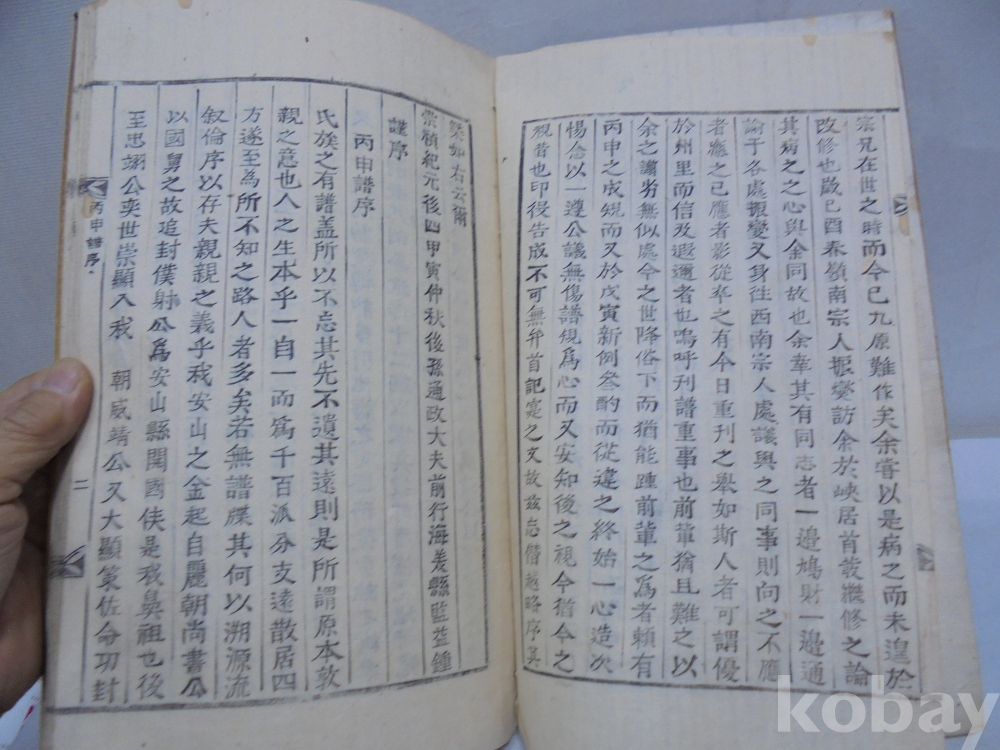 宗兄在世之時而今已九原難作矣余嘗以是病之而未遑於
改修也歲己酉春嶺南宗人振燮訪余於峽居首發譜修之論
其病之之心與余同故也余幸其有同志者一邊鳩財一邊通
諭于各處振燮又身往西南宗人處議與之同事則向之不應
者應之已應者影從卒之有今日重刊之舉如斯人者可謂優
於州里而信及遐邇者也嗚呼刊譜重事也前輩猶且難之以
余之謭劣無似處今之世降俗下而猶能踵前輩之爲者賴有
丙申之成規而又於戊寅新例叅酌而從違之終始一心造次
惕念以一遵公議無傷譜規爲心而又安知後之視今猶今之
視昔也印役告成不可無弁首記寔之文故玆忘僭越略序其
槩如右云爾
崇禎紀元後四甲寅仲秋後孫通政大夫前行海美縣監益鍾
謹序
丙申譜序
氏族之有譜盖所以不忘其先不遺其遠則是所謂原本敦
親之意也人之生本乎一自一而爲千百派分支遠散居四
方遂至為所不知之路人者多矣若無譜牒其何以溯源流
叙倫序以存夫親親之義乎我安山之金起自麗朝尚書公
以國舅之故追封僕射公爲安山縣開國侯是我鼻祖也後
至忠翊公奕世崇顯入我 朝威靖公又大顯策佐命功封
丙甲譜序
二
kobay